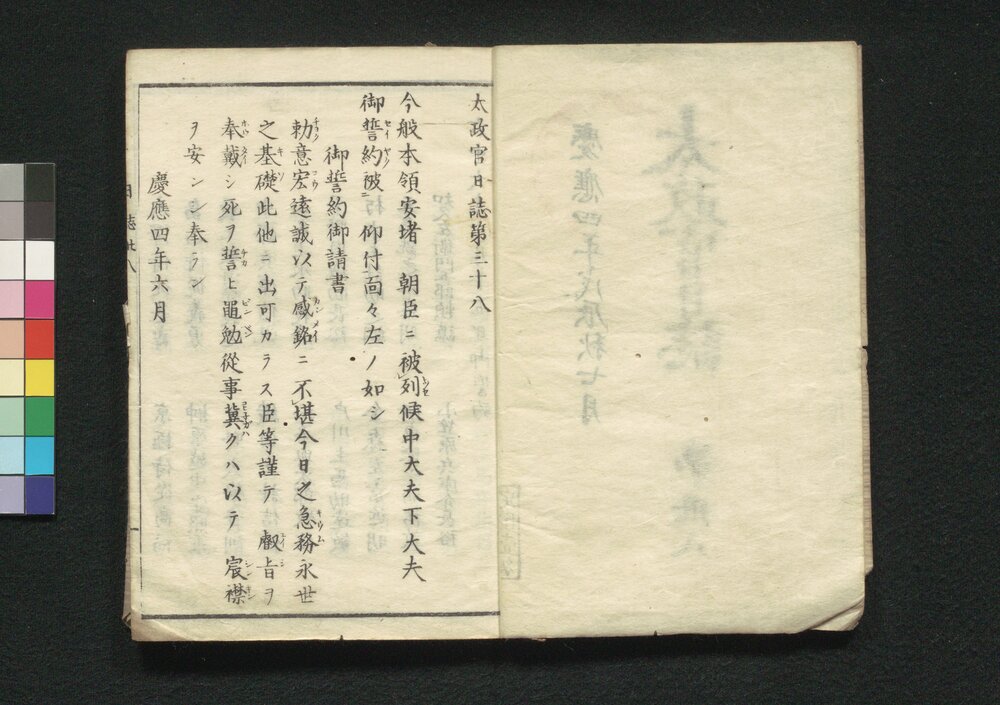 太政官日誌第三十八
今般本領安堵 朝臣ニ被列候中大夫下大夫
御誓約被 仰付面々左ノ如シ
御誓約御請書
勅意宏遠誠以テ感銘ニ不堪今日之急務永世
之基礎此他ニ出可カラス臣等謹テ 叡旨ヲ
奉戴シ死ヲ誓ヒ黽勉從事冀クハ以テ 宸襟
ヲ安ンシ奉ラン
慶應四年六月
日誌卅八